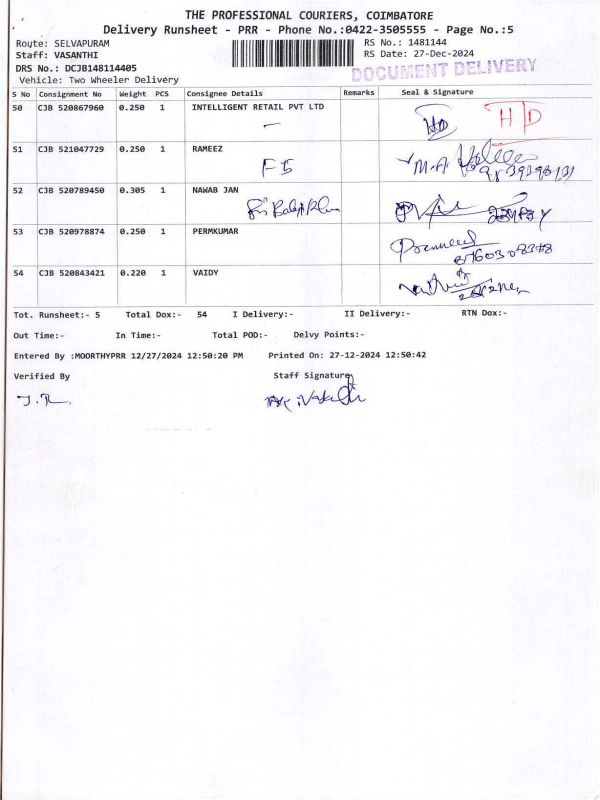 THE PROFESSIONAL COURIERS, COIMBATORE
Delivery Runsheet - PRR - Phone No.:0422-3505555 - Page No.:5
Route: SELVAPURAM
RS No.: 1481144
Staff: VASANTHI
RS Date: 27-Dec-2024
DRS No.: DCJB148114405
DOCUMENT DELIVERY
Vehicle: Two Wheeler Delivery
S No Consignment No Weight PCS Consignee Details Remarks Seal & Signature
50 CJB 520867960 0.250 1 INTELLIGENT RETAIL PVT LTD
HD HD
51 CJB 521047729 0.250 1 RAMEEZ
M.A
52 CJB 520789450 0.305 1 NAWAB JAN
53 CJB 520978874 0.250 1 PERMKUMAR
54 CJB 520843421 0.220 1 VAIDY
Tot. Runsheet:- 5 Total Dox:- 54 I Delivery:- II Delivery:- RTN Dox:-
Out Time:- In Time:- Total POD:- Delvy Points:-
Entered By :MOORTHYPRR 12/27/2024 12:50:20 PM Printed On: 27-12-2024 12:50:42
Verified By Staff Signature